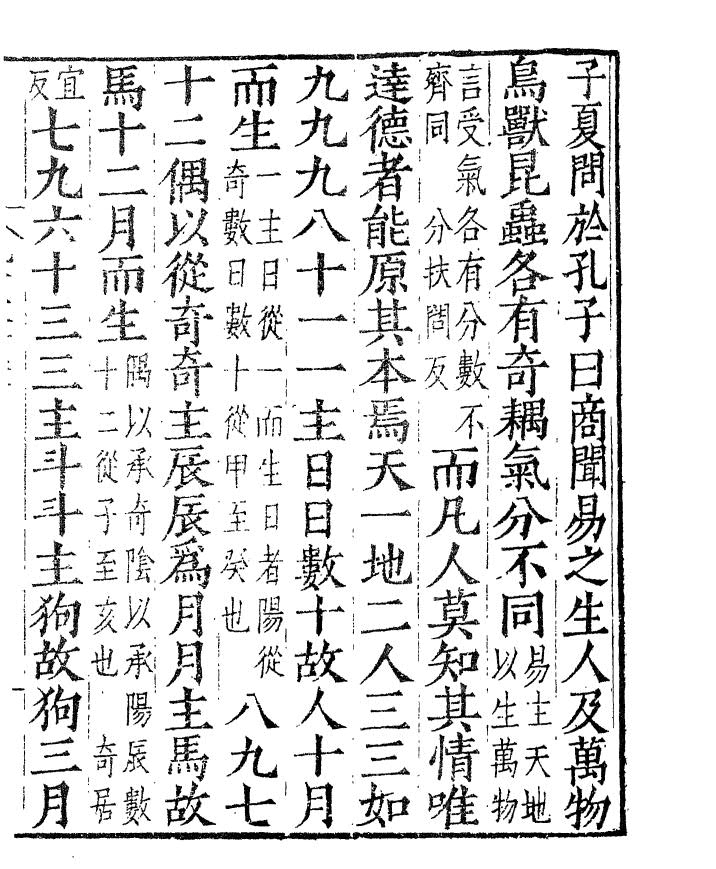 子夏問於孔子曰商聞易之生人及萬物
鳥獸昆蟲各有奇耦氣分不同易主天地以生萬物
言受氣各有分數不齊同 分扶問反而凡人莫知其情唯
達德者能原其本焉天一地二人三三如
九九九八十一一主日日數十故人十月
而生一主日從一而生日者陽從奇數日數十從甲至癸也八九七
十二偶以從奇奇主辰辰爲月月主馬故
馬十二月而生偶以承奇陰以承陽辰數十二從子至亥也 奇居
宜反七九六十三三主斗斗主狗故狗三月